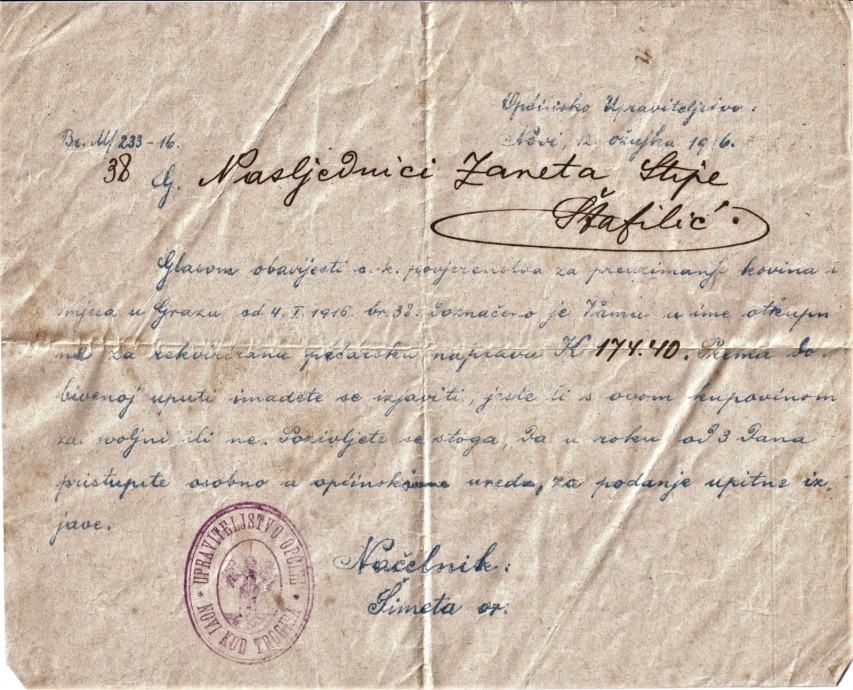 Općinsko Upraviteljstvo.
Novi, 12. ožujka 1916.
Br. M/233-16.
38
G. Nasljednici Zaneta Stipe
Štafilić.
Glasom obavijesti c. k. povjerenstva za preuzimanje kovina i
smjesa u Grazu od 4. I. 1916. br. 38. Doznačeno je Vama u ime otkupni
ne za rekviriranu pečarsku napravu K 174.40. Prema do-
bivenoj uputi imadete se izjaviti, jeste li s ovom kupovinom
zadovoljni ili ne. Pozivljete se stoga, da u roku od 3 dana
pristupite osobno u općinski ured, za podanje upitne iz-
jave.
Načelnik:
Šimeta vr.
UPRAVITELJSTVO OPĆINE
NOVI KOD TROGIRA